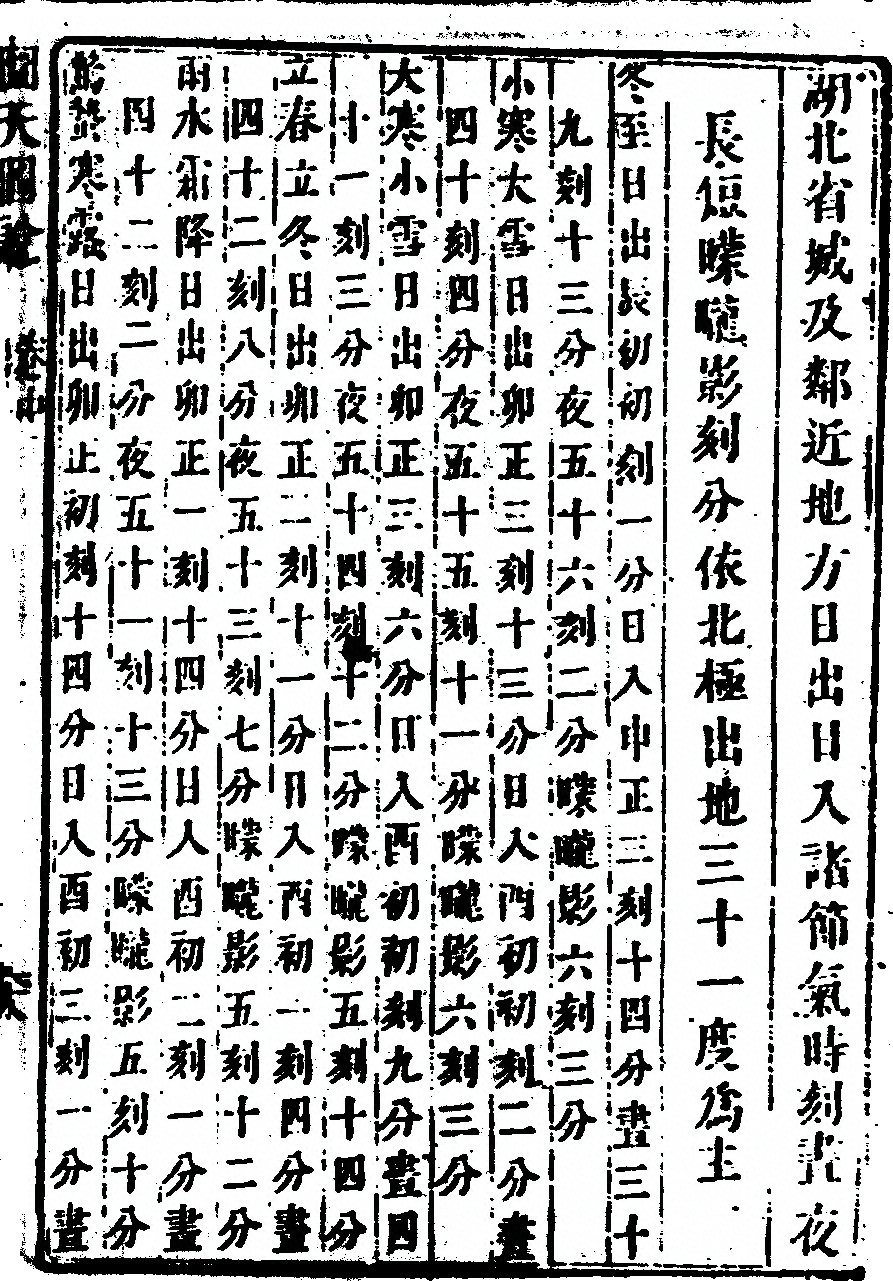 湖北省城及鄰近地方日出日入諸節氣時刻晝夜
長短曚曨影刻分依北極出地三十一度爲主
冬至日出辰初初刻一分日入申正三刻十四分晝三十
九刻十三分夜五十六刻二分曚曨影六刻三分
小寒大雪日出卯正三刻十三分日入酉初初刻二分晝
四十刻四分夜五十五刻十一分曚曨影六刻三分
大寒小雪日出卯正三刻六分日入酉初初刻九分晝四
十一刻三分夜五十四刻十二分曚曨影五刻十四分
立春立冬日出卯正二刻十一分日入酉初一刻四分晝
四十二刻八分夜五十三刻七分曚曨影五刻十二分
雨水霜降日出卯正一刻十四分日入酉初二刻一分晝
四十二刻二分夜五十一刻十三分曚曨影五刻十分
驚蟄寒露日出卯正初刻十四分日入酉初三刻一分晝
圜天圖說
卷中